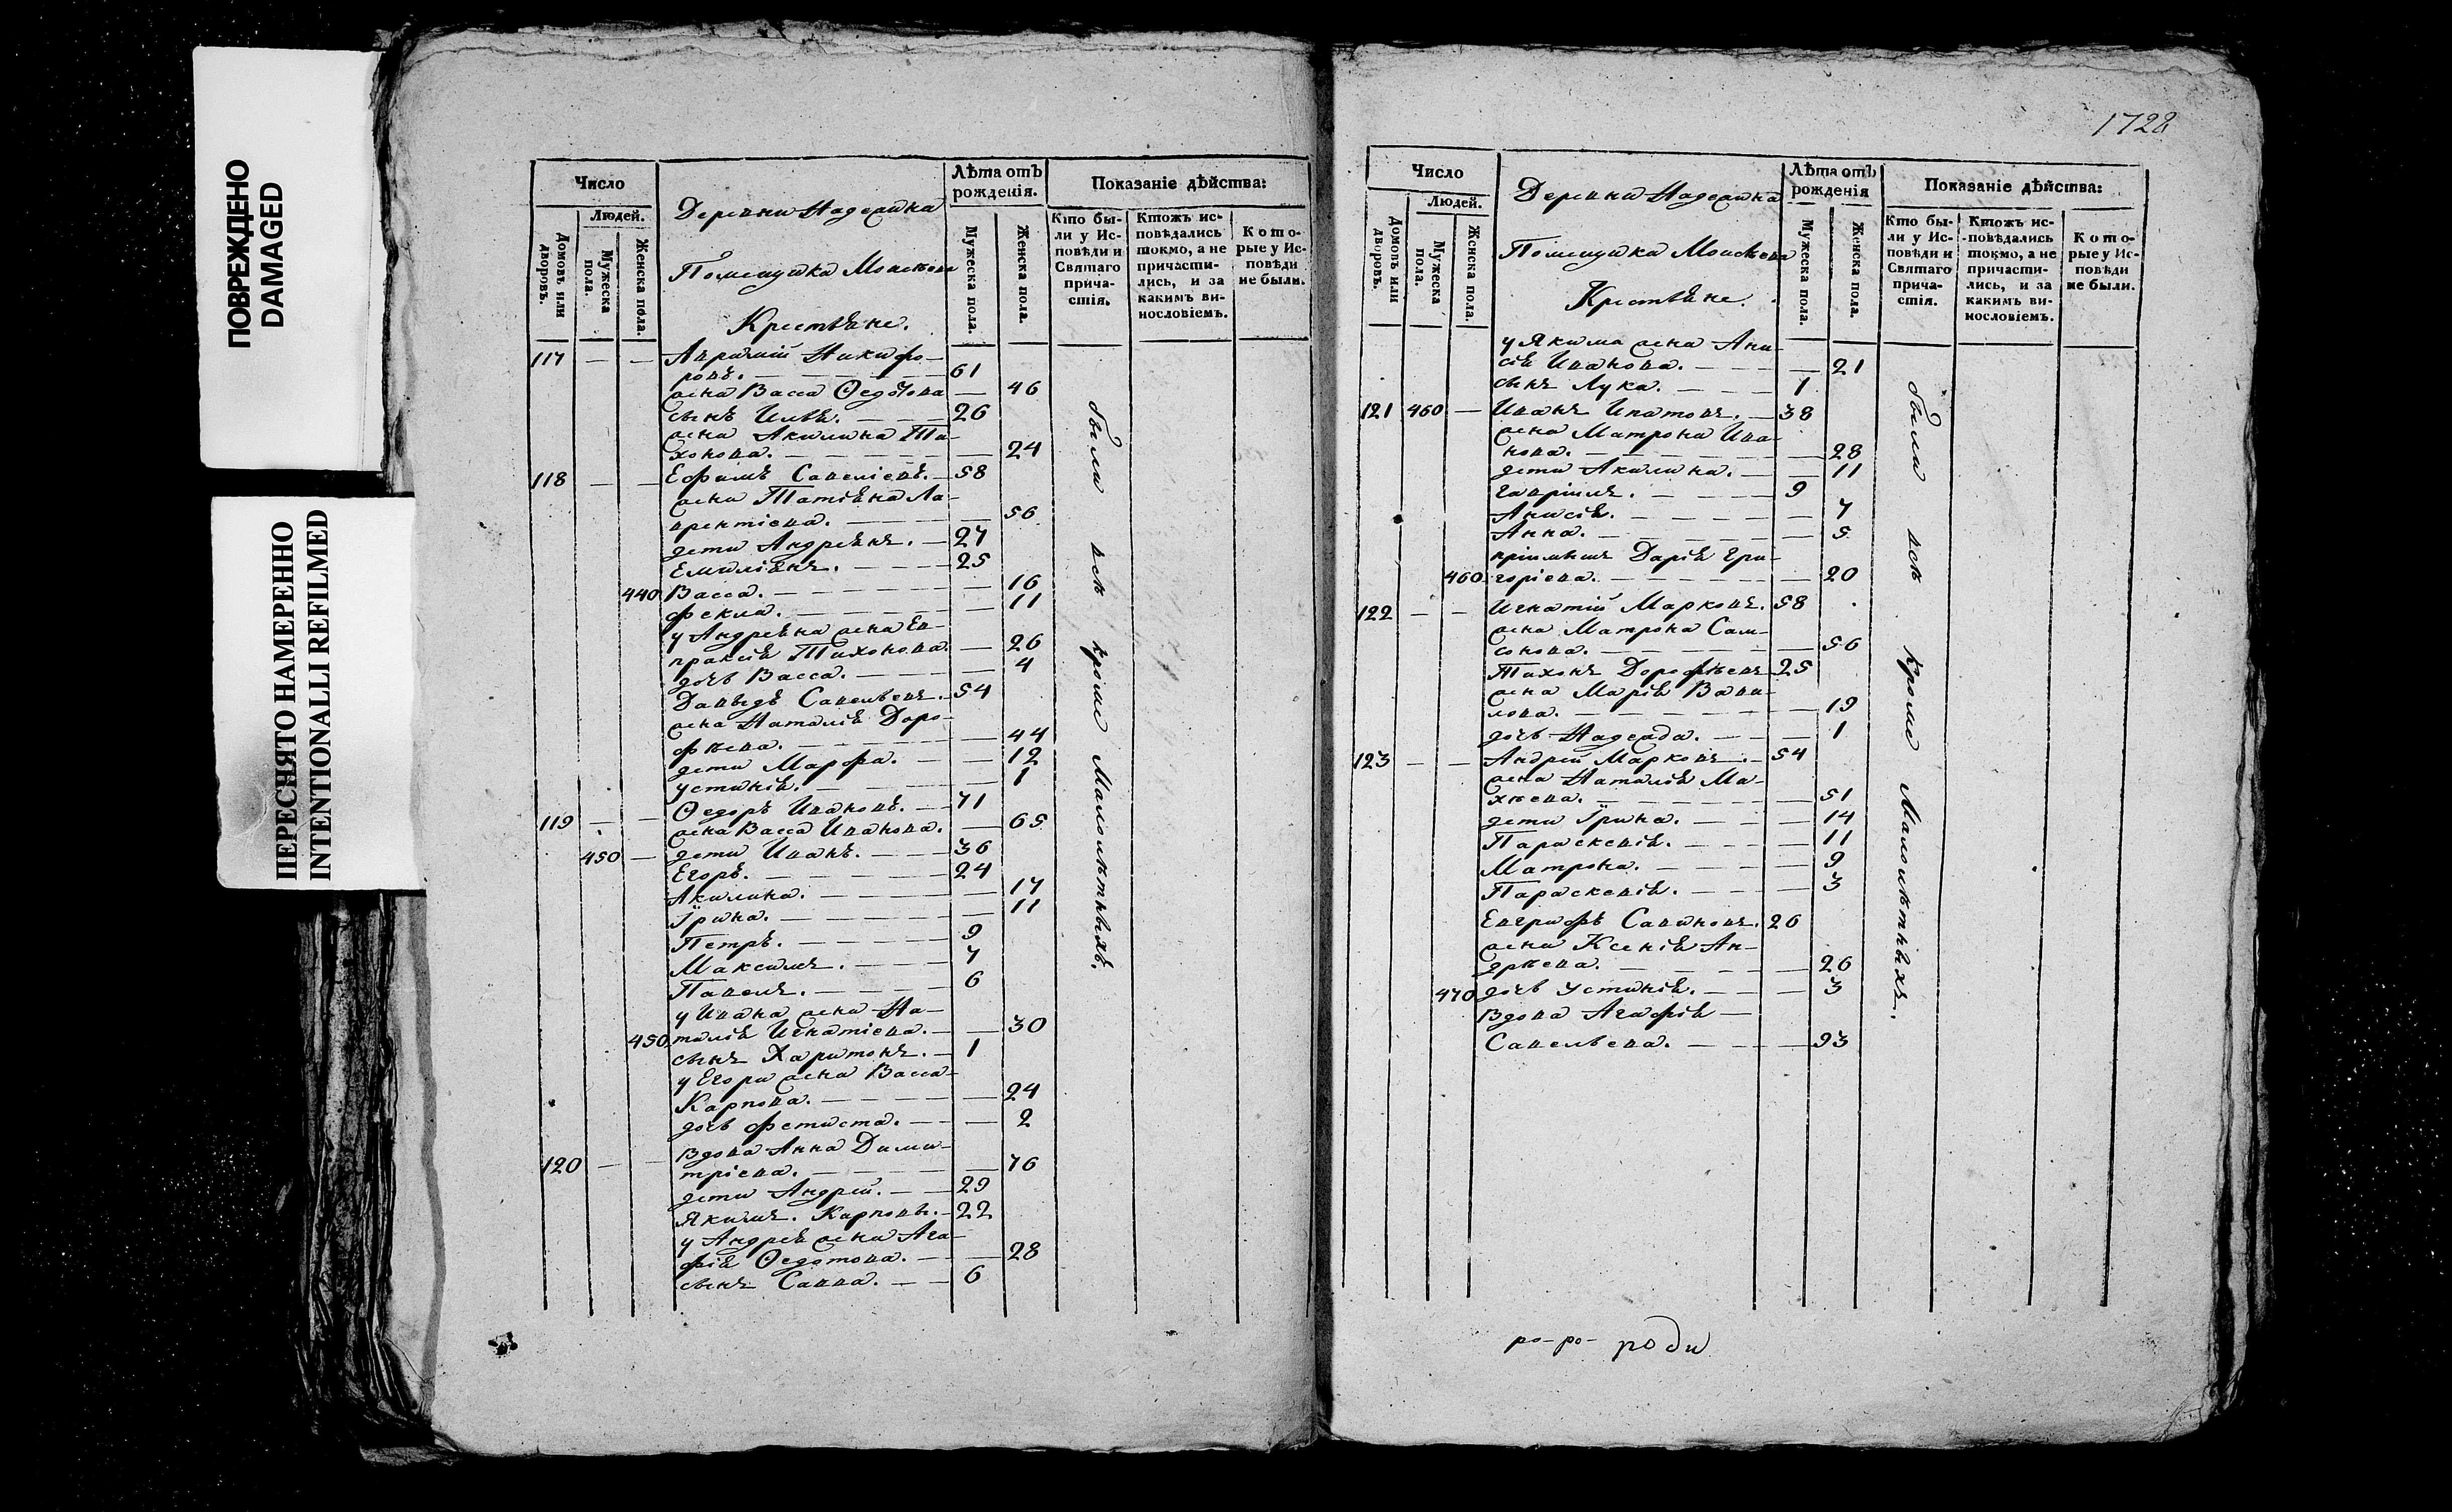 ПОВРЕЖДЕНО
DAMAGED
ПЕРЕСНЯТО НАМЕРЕННО
INTENTIONALLI REFILMED
Число
Людей.
Домовъ или дворовъ.
Мужеска пола.
Женска пола.
Деревни Надежина
Помещика Моисеева
Крестьяне.
Лѣта отъ рожденія.
Мужеска пола.
Женска пола.
Показаніе дѣйства:
Кто были у Исповѣди и Святаго причастія.
Ктожъ исповѣдались токмо, а не причастились, и за какимъ винословіемъ.
Которые у Исповѣди не были.
117 — — Никифо-
ровъ. — 61
жена Васса Ѳедотова — 46
сынъ Илья. — 26
жена Акилина Ти-
хонова. — 24
118 — — Ефимъ Савеліевъ. — 58
жена Татіяна Ла-
врентіева. — 56
дети Андреянъ. — 27
Емиліянъ. — 25
440 Васса. — 16
Фекла. — 11
у Андреяна жена Ев-
праксія Тихонова. — 26
дочь Васса. — 4
Давыдъ Савельевъ. — 54
жена Наталія Доро-
фѣева. — 44
дети Марфа. — 12
Устинія. — 1
119 — — Ѳедоръ Ивановъ. — 71
жена Васса Иванова. — 65
450 — дети Иванъ. — 36
Егоръ. — 24
Акилина. — 17
Ірина. — 11
Петръ. — 9
Максимъ. — 7
Павелъ. — 6
у Ивана жена На-
450 талія Игнатіева. — 30
сынъ Харитонъ. — 1
у Егора жена Васса
Карпова. — 24
дочь Фетиста. — 2
120 — — Вдова Анна Дими-
тріева. — 76
дети Андрей. — 29
Якимъ. Карповы. — 22
у Андрея жена Ага-
фія Ѳедотова. — 28
сынъ Савва. — 6
были всѣ кроме Малолѣтныхъ.
1728
Число
Людей.
Домовъ или дворовъ.
Мужеска пола.
Женска пола.
Деревни Надежина
Помещика Моисеева
Крестьяне.
Лѣта отъ рожденія
Мужеска пола.
Женска пола.
Показаніе дѣйства:
Кто были у Исповѣди и Святаго причастія.
Ктожъ исповѣдались токмо, а не причастились, и за какимъ винословіемъ.
Которые у Исповѣди не были.
у Якима жена Ани-
сія Иванова. — 21
сынъ Лука. — 1
121 460 — Иванъ Ипатовъ. — 38
жена Матрона Ива-
нова. — 28
дети Акилина. — 11
Гавріилъ. — 9
Анисія. — 7
Анна. — 5
Дарія Гри-
460 горіева. — 20
122 — — Игнатій Марковъ. 58
жена Матрона Сам-
сонова. — 56
Тихонъ Дорофѣевъ 25
жена Марія Вави-
лова. — 19
дочь Надежда. — 1
123 — — Андрей Марковъ. — 54
жена Наталія Ма-
хѣева. — 51
дети Ірина. — 14
Параскевія. — 11
Матрона. — 9
Параскевія. — 3
Евграфъ Савиновъ. 26
жена Ксенія Ан-
дрѣева. — 26
470 дочь Устинія. — 3
Вдова Агафія —
Савельева. — 93
были всѣ Кроме Малолѣтныхъ.
ро-ро- роди